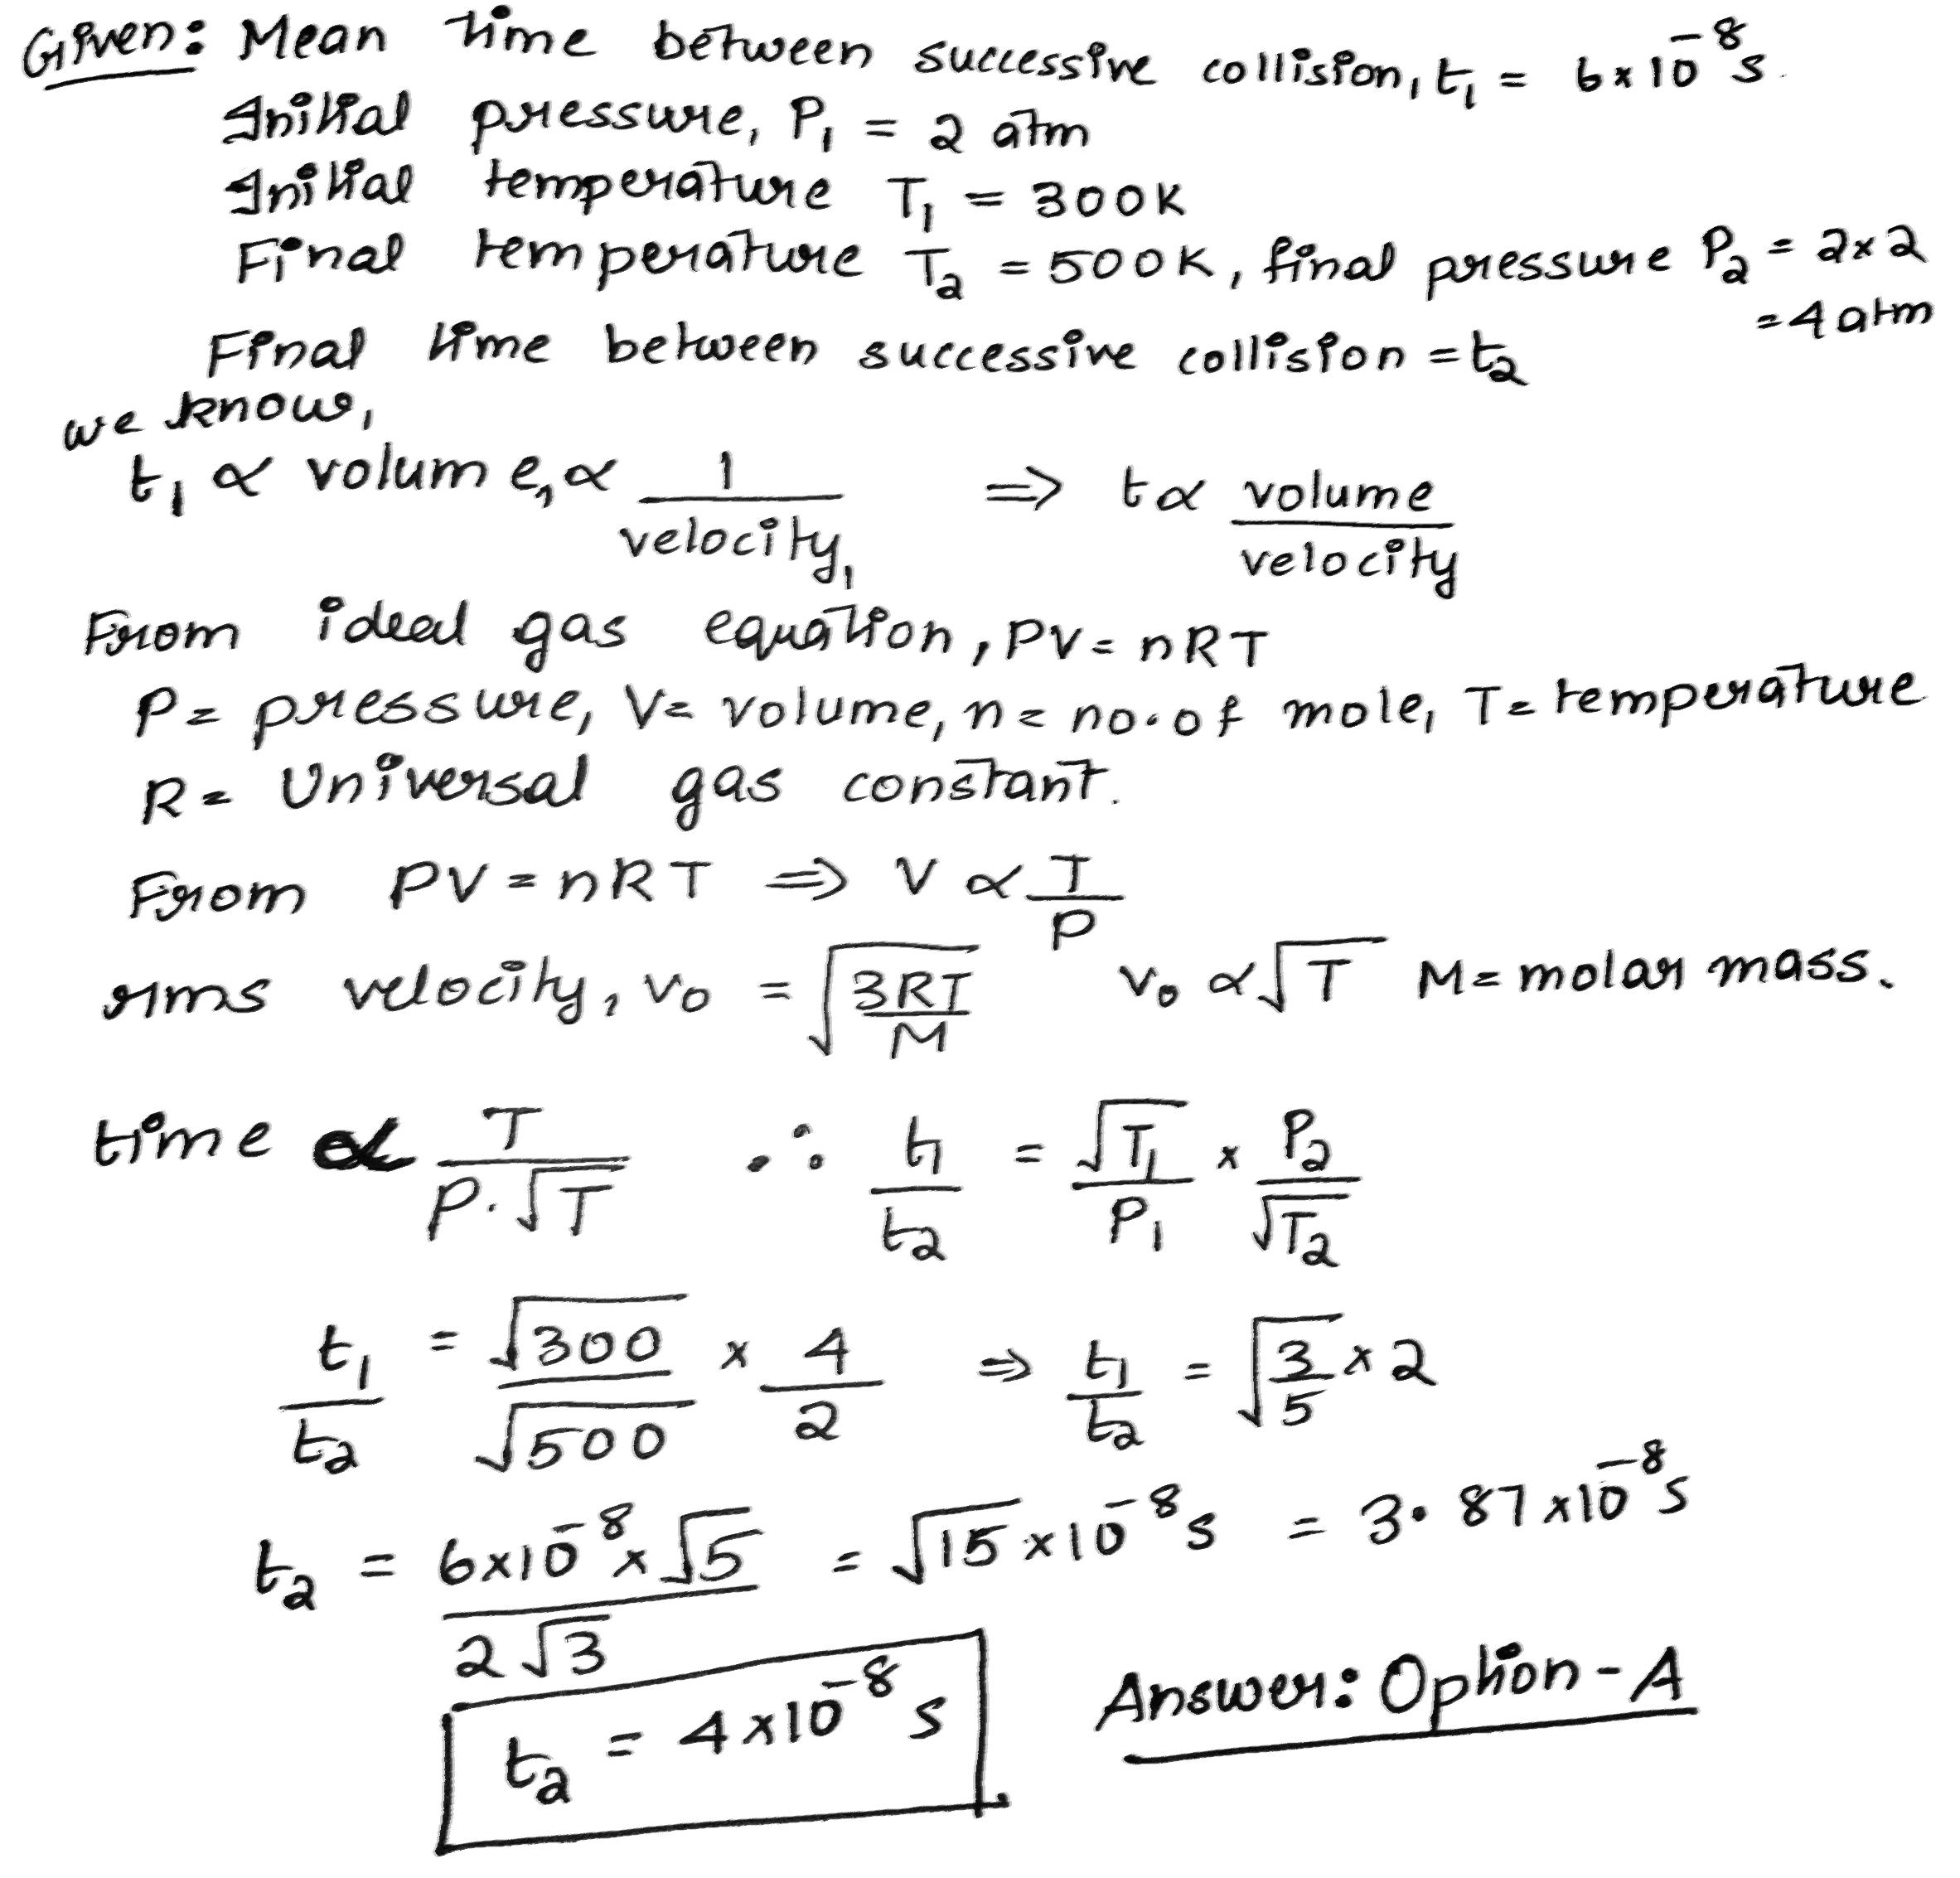 Given: Mean time between successive collision, t₁ = 6×10⁻⁸s.
Initial pressure, P₁ = 2 atm
Initial temperature T₁ = 300K
Final temperature T₂ = 500K, final pressure P₂ = 2×2
=4 atm
Final time between successive collision = t₂
we know,
t₁ ∝ volume, ∝ 1/velocity, ⇒ t ∝ volume/velocity
From ideal gas equation, PV = nRT
P = pressure, V = volume, n = no. of mole, T = temperature
R = Universal gas constant.
From PV = nRT ⇒ V ∝ T/P
rms velocity, v₀ = √(3RT/M) v₀ ∝ √T M = molar mass.
time ∝ T/(P.√T) ∴ t₁/t₂ = √T₁/P₁ × P₂/√T₂
t₁/t₂ = √300/√500 × 4/2 ⇒ t₁/t₂ = √(3/5) × 2
t₂ = (6×10⁻⁸ × √5)/(2√3) = √15 × 10⁻⁸ s = 3.87 × 10⁻⁸ s
t₂ = 4×10⁻⁸ s
Answer: Option - A